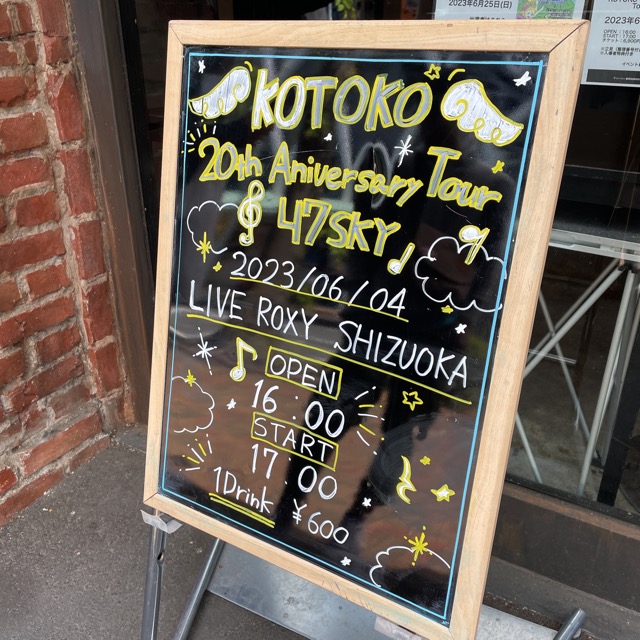 KOTOKO
20th Aniversary Tour
47SKY
2023/06/04
LIVE ROXY SHIZUOKA
OPEN
16:00
START
17:00
1Drink ¥600
2023年6月25日(日)
2023年6
OPEN : 16:00
START : 17:00